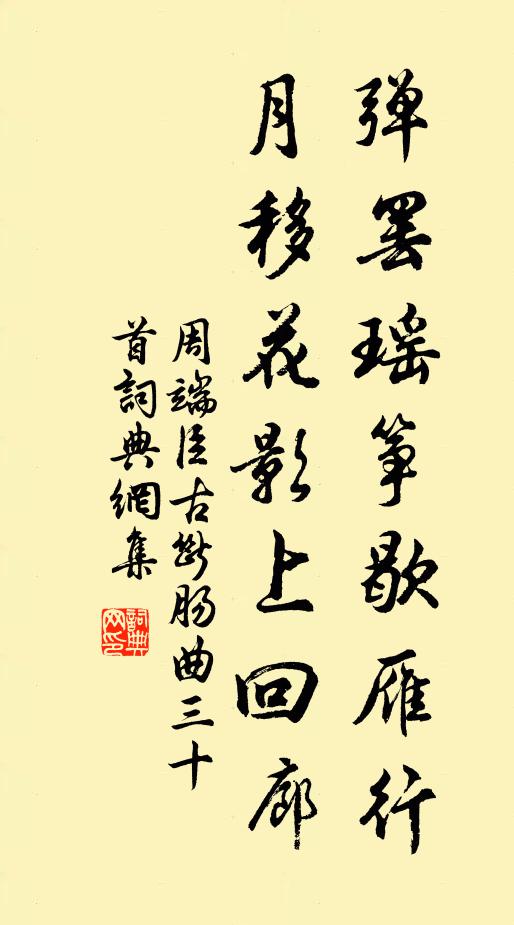 弹罢瑶筝歇雁行
月移花影上回廊
周端臣古断肠曲三十
首詞典網集
詞典网印